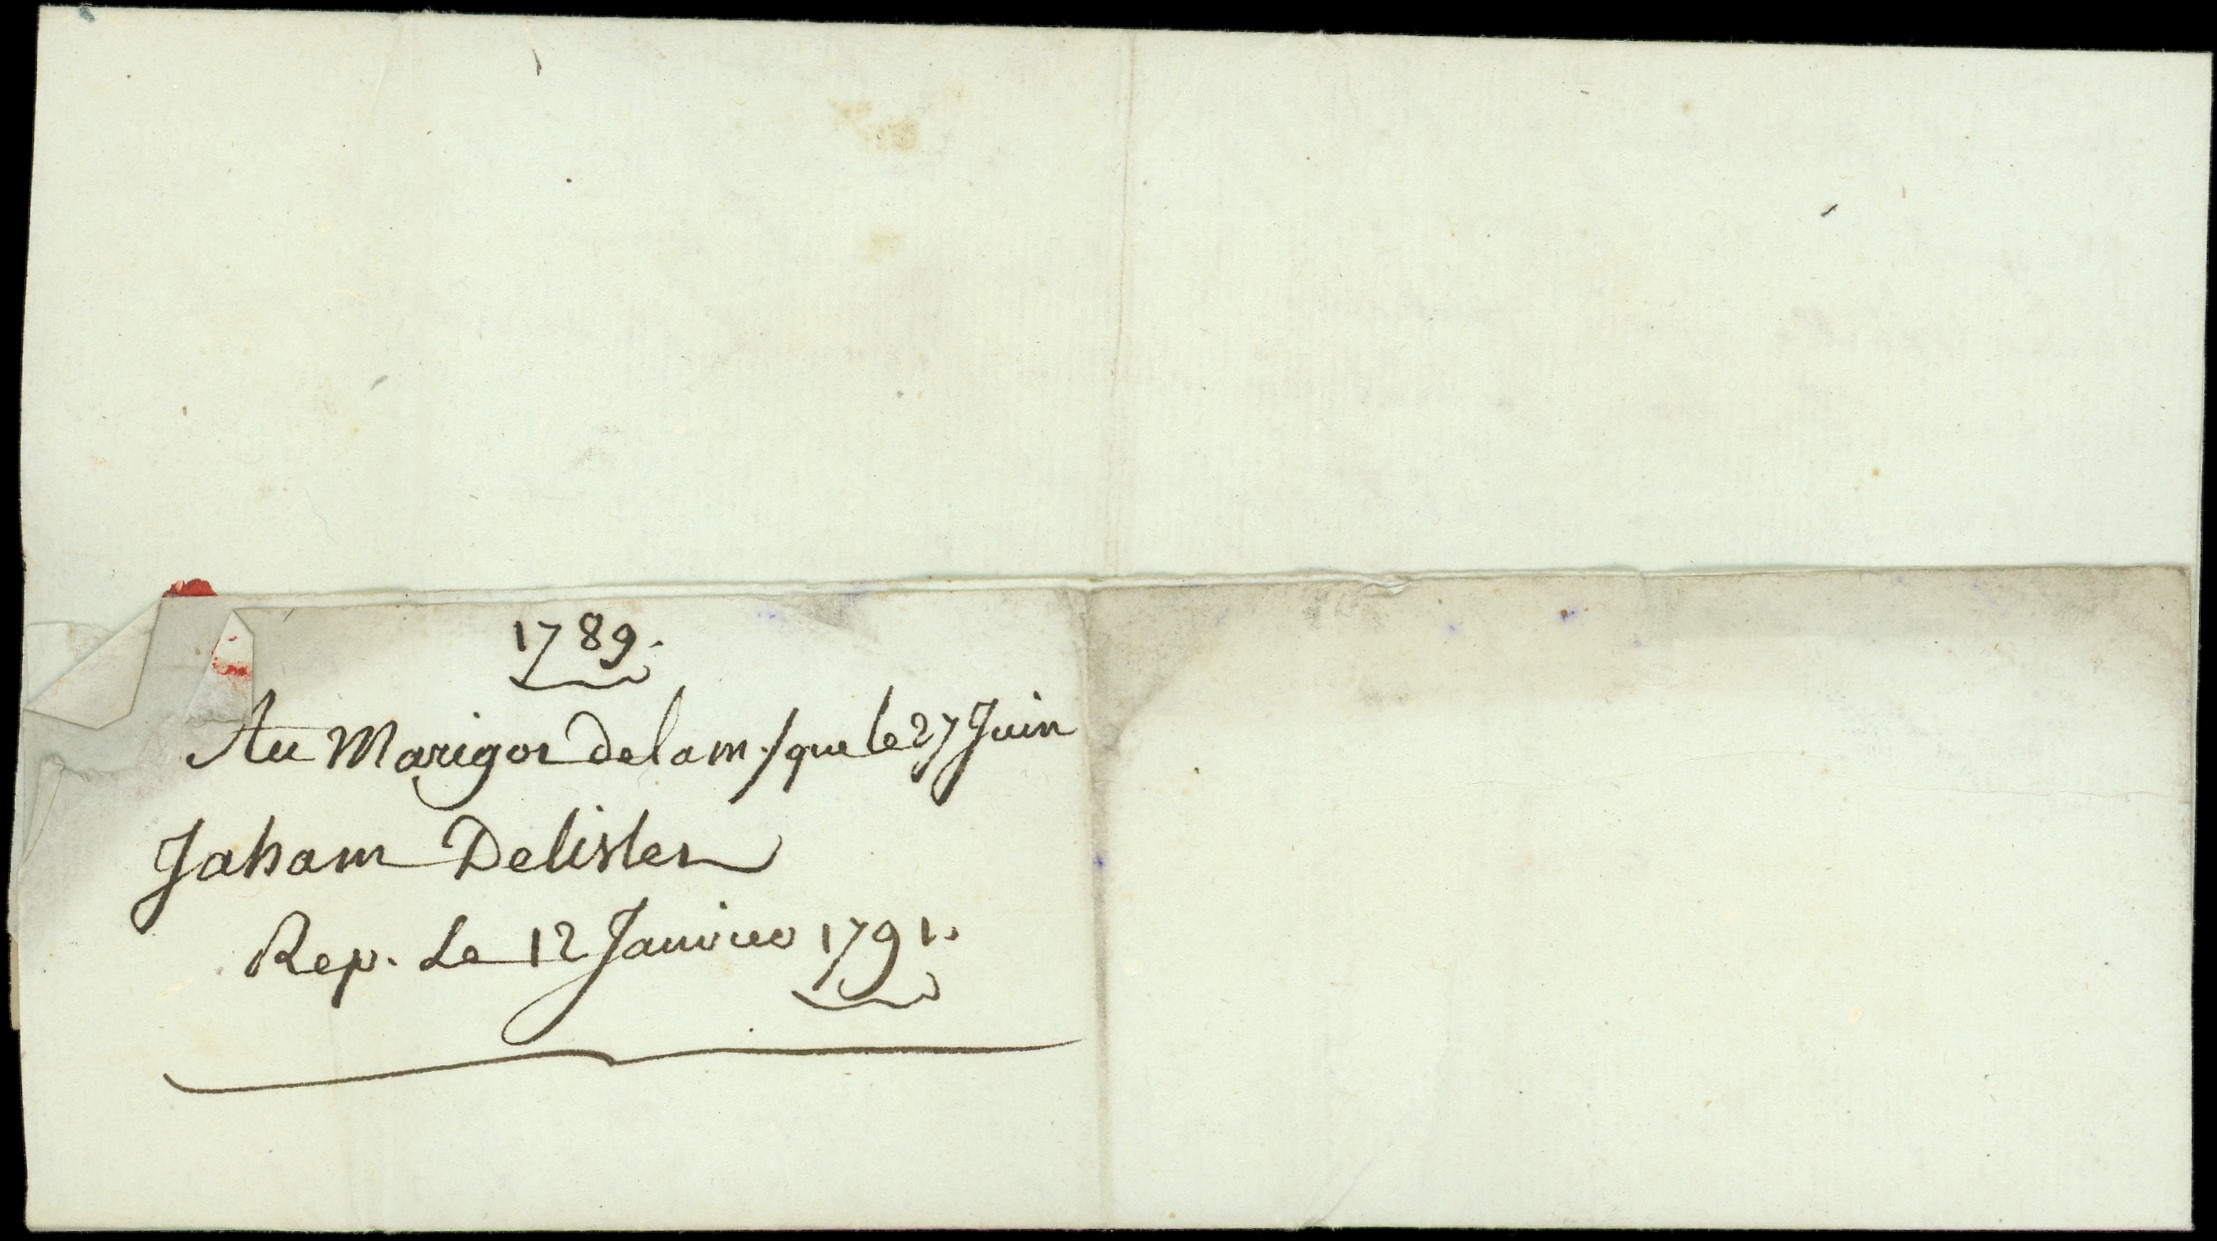 1789.
Au Marigot de la m/que le 27 Juin
Jaham Delisles
Rep. Le 12 Janvier 1791.